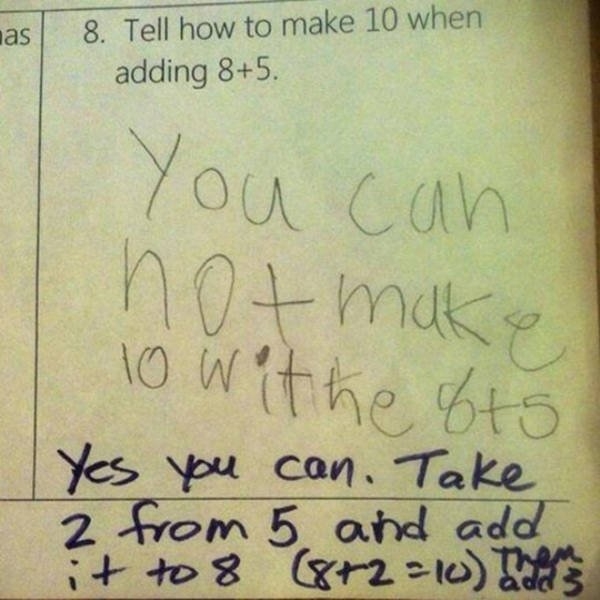 as
8. Tell how to make 10 when
adding 8+5.
You can
not make
10 withe 8+5
Yes you can. Take
2 from 5 and add
it to 8 (8+2=10) Then
add 3